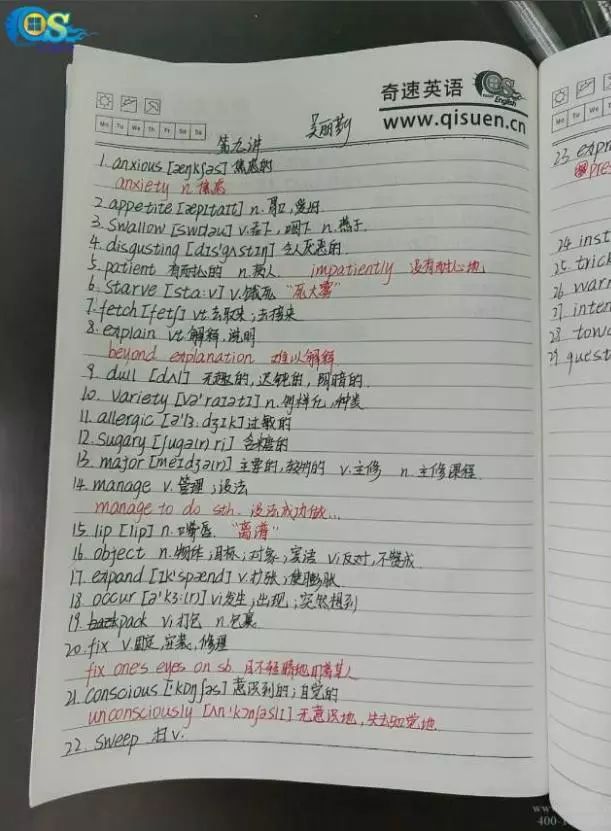 QS
奇速英语
QS
English
www.qisuen.cn
Mo Tu We Th Fr Sa Su
第九讲
1. anxious [æŋkʃəs] 焦虑的
anxiety n. 焦虑
2. appetite [æpɪtaɪt] n. 胃口,爱好
3. swallow [swɒləu] v.吞下,咽下 n.燕子
4. disgusting [dɪs'gʌstɪŋ] 令人厌恶的
5. patient 有耐心的 n.病人 impatiently 没有耐心地
6. starve [sta:v] v.饿死
7. fetch [fetʃ] vt.去取来;去接来
8. explain vt.解释,说明
beyond explanation 难以解释
9. dull [dʌl] 无趣的,迟钝的,阴暗的
10. variety [və'raɪətɪ] n.多样化,种类
11. allergic [ə'lɜ.dʒɪk] 过敏的
12. sugary [ʃugə(r) ri] 含糖的
13. major [meɪdʒə(r)] 主要的,较大的 v.主修 n.主修课程
14. manage v.管理;设法
manage to do sth. 设法成功做...
15. lip [lɪp] n.嘴唇 "离谱"
16. object n.物体;目标;对象;宾语 vi反对,不赞成
17. expand [ɪk'spænd] v.扩张;使膨胀
18. occur [ə'kɜ:(r)] vi发生;出现;突然想到
19. pack vi打包 n.包裹
20. fix v.固定,安装,修理
fix one's eyes on sb. 目不转睛地盯着某人
21. conscious ['kɒnʃəs] 意识到的;自觉的
unconsciously [ʌn'kɒnʃəslɪ] 无意识地,失去知觉地
22. sweep 扫 v.
23 expr
pres
24. inst
25. trick
26 warn
27 inten
28 towa
29 quest
www
400-1